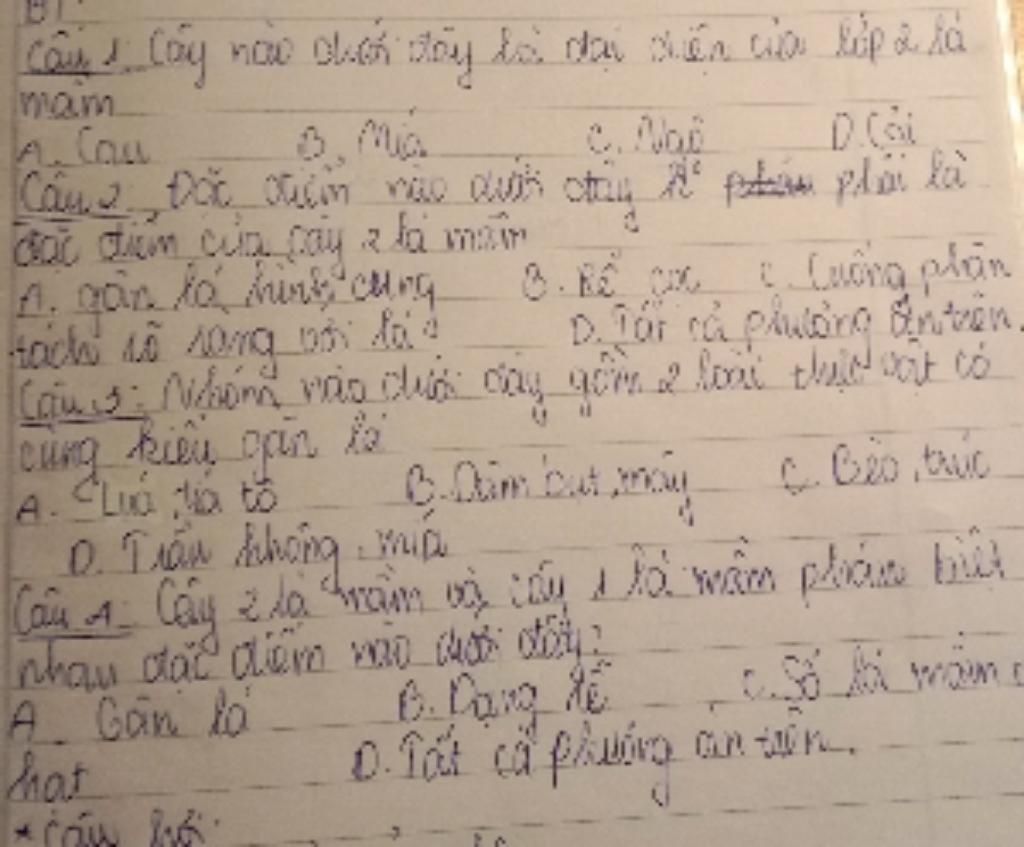 BT:
Câu 1: Cây nào dưới đây là đại diện của lớp 2 lá
mầm
A. Cau B. Mía C. Ngô D. Cải
Câu 2. Đặc điểm nào dưới đây k° phải là
đặc điểm của cây 2 lá mầm
A. gân lá hình cung B. Rễ cọc C. Cuống phân
tách rõ ràng với lá D. Tất cả phương án trên.
Câu 3: Nhóm nào dưới đây gồm 2 loài thực vật có
cùng kiểu gân lá
A. Lúa, tía tô B. Dâm bụt, mây C. Bèo, trúc
D. Trầu không, mía
Câu 4: Cây 2 lá mầm và cây 1 lá mầm phân biệt
nhau đặc điểm nào dưới đây?
A. Gân lá B. Dạng rễ C. Số lá mầm
hạt D. Tất cả phương án trên.
* Câu hỏi